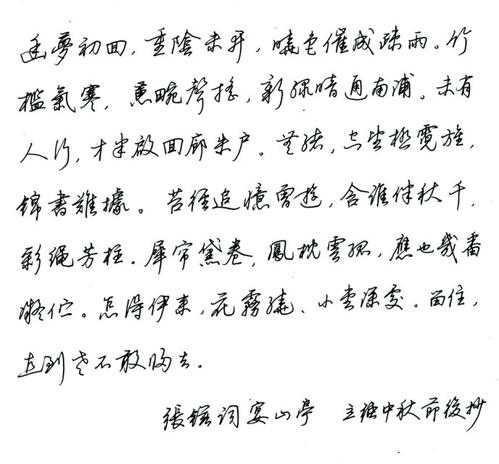 幽夢初回，重陰未开，曉色催成疎雨。竹
檻氣寒，蕙畹聲搖，新綠暗通南浦。未有
人行，才半啟回廊朱户。无緒，空望極霓旌，
錦書難據。苔徑追憶曾遊，念誰伴秋千，
彩繩芳柱。犀帘黛卷，鳳枕雲孤，應也幾番
凝伫。怎得伊來，花霧繞、小堂深處。留住，
直到老不教歸去。
張鎡詞宴山亭 立強中秋前後抄